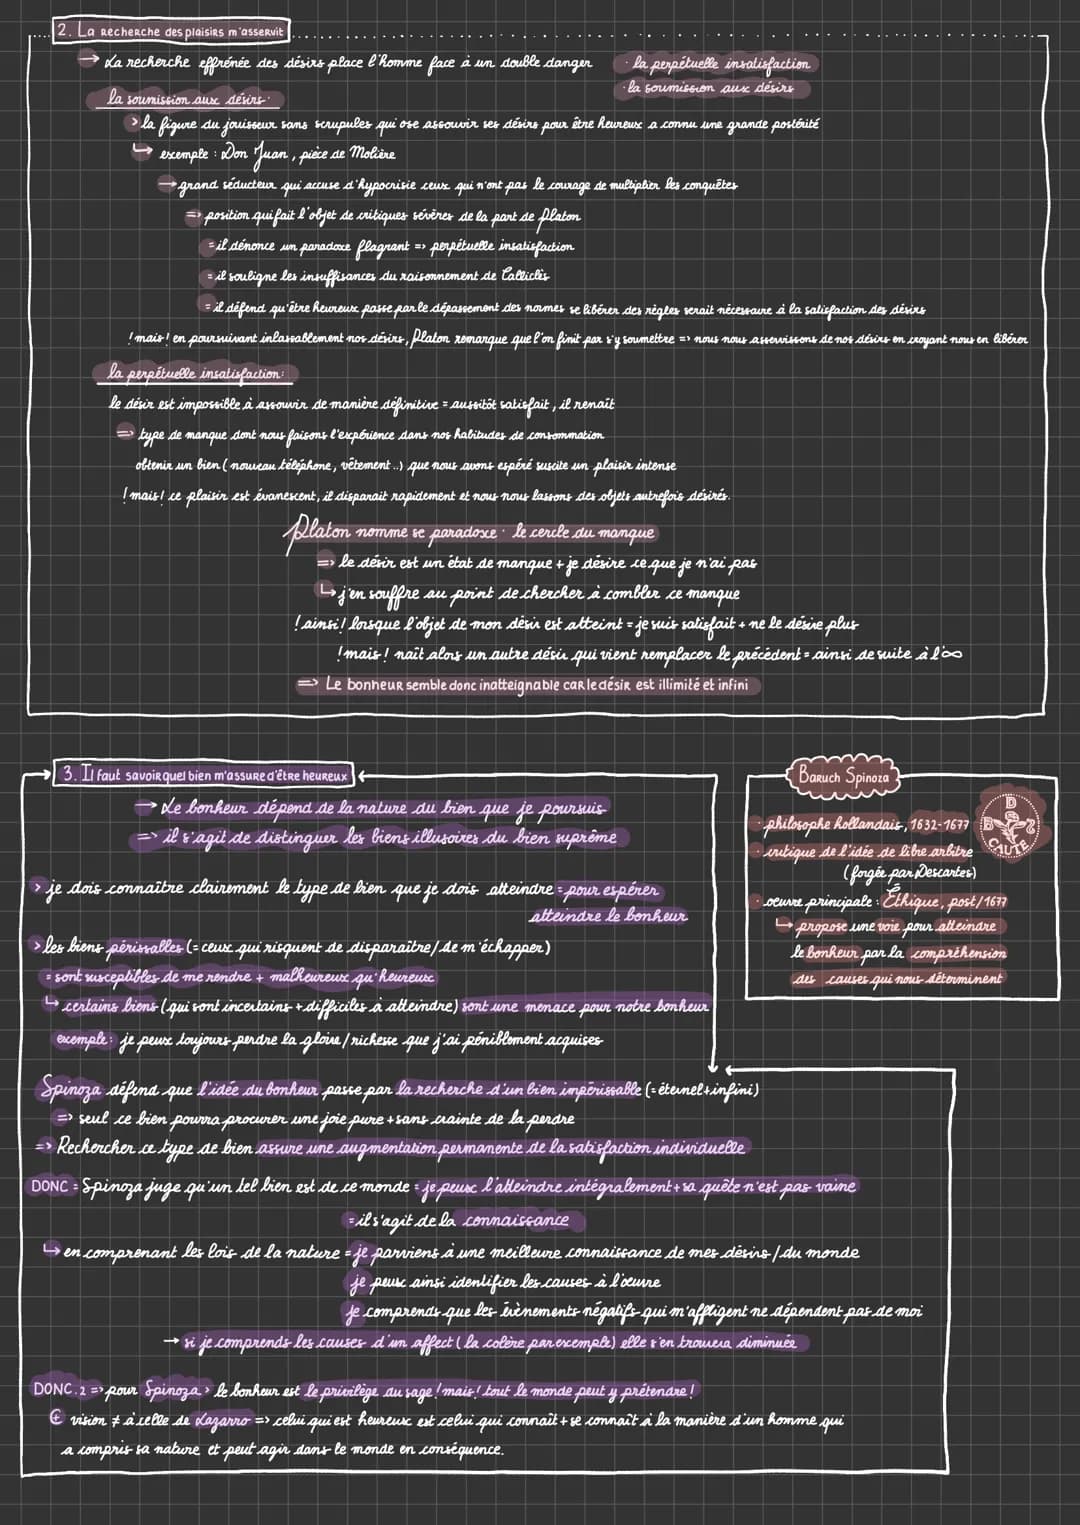 2. La recherche des plaisirs m'asservit
→ La recherche effrénée des désirs place l'homme face à un double danger · la perpétuelle insatisfaction
· la soumission aux désirs
la soumission aux désirs:
> la figure du jouisseur sans scrupules qui ose assouvir ses désirs pour être heureux a connu une grande postérité
↳ exemple : Don Juan, pièce de Molière
→ grand séducteur qui accuse d'hypocrisie ceux qui n'ont pas le courage de multiplier les conquêtes
=> position qui fait l'objet de critiques sévères de la part de Platon
= il dénonce un paradoxe flagrant => perpétuelle insatisfaction
= il souligne les insuffisances du raisonnement de Calliclès
= il défend qu'être heureux passe par le dépassement des normes se libérer des règles serait nécessaire à la satisfaction des désirs
! mais ! en poursuivant inlassablement nos désirs, Platon remarque que l'on finit par s'y soumettre => nous nous asservissons de nos désirs en croyant nous en libérer
la perpétuelle insatisfaction:
le désir est impossible à assouvir de manière définitive = aussitôt satisfait, il renaît
=> type de manque dont nous faisons l'expérience dans nos habitudes de consommation
obtenir un bien (nouveau téléphone, vêtement ..) que nous avons espéré suscite un plaisir intense
! mais ! ce plaisir est évanescent, il disparait rapidement et nous nous lassons des objets autrefois désirés.
Platon nomme se paradoxe : le cercle du manque
=> le désir est un état de manque + je désire ce que je n'ai pas
↳ j'en souffre au point de chercher à combler ce manque
! ainsi ! lorsque l'objet de mon désir est atteint = je suis satisfait + ne le désire plus
! mais ! naît alors un autre désir qui vient remplacer le précédent = ainsi de suite à l'∞
=> Le bonheur semble donc inatteignable car le désir est illimité et infini
3. Il faut savoir quel bien m'assure d'être heureux
→ Le bonheur dépend de la nature du bien que je poursuis
=> il s'agit de distinguer les biens illusoires du bien suprême
> je dois connaître clairement le type de bien que je dois atteindre = pour espérer
atteindre le bonheur
> les biens périssables (= ceux qui risquent de disparaître/de m'échapper)
= sont susceptibles de me rendre + malheureux qu'heureux
↳ certains biens (qui sont incertains + difficiles à atteindre) sont une menace pour notre bonheur
exemple : je peux toujours perdre la gloire/richesse que j'ai péniblement acquises
Baruch Spinoza
· philosophe hollandais, 1632-1677
· critique de l'idée de libre arbitre
(forgée par Descartes)
· oeuvre principale : Éthique, post/1677
↳ propose une voie pour atteindre
le bonheur par la compréhension
des causes qui nous déterminent
CAUTE
Spinoza défend que l'idée du bonheur passe par la recherche d'un bien impérissable (= éternel + infini)
=> seul ce bien pourra procurer une joie pure + sans crainte de la perdre
=> Rechercher ce type de bien assure une augmentation permanente de la satisfaction individuelle
DONC = Spinoza juge qu'un tel bien est de ce monde = je peux l'atteindre intégralement + sa quête n'est pas vaine
= il s'agit de la connaissance
↳ en comprenant les lois de la nature = je parviens à une meilleure connaissance de mes désirs / du monde
je peux ainsi identifier les causes à l'œuvre
je comprends que les évènements négatifs qui m'affligent ne dépendent pas de moi
→ si je comprends les causes d'un affect (la colère par exemple) elle s'en trouvera diminuée
DONC. 2 => pour Spinoza > le bonheur est le privilège du sage ! mais ! tout le monde peut y prétendre !
vision ≠ à celle de Lazarro => celui qui est heureux est celui qui connaît + se connaît à la manière d'un homme qui
a compris sa nature et peut agir dans le monde en conséquence.